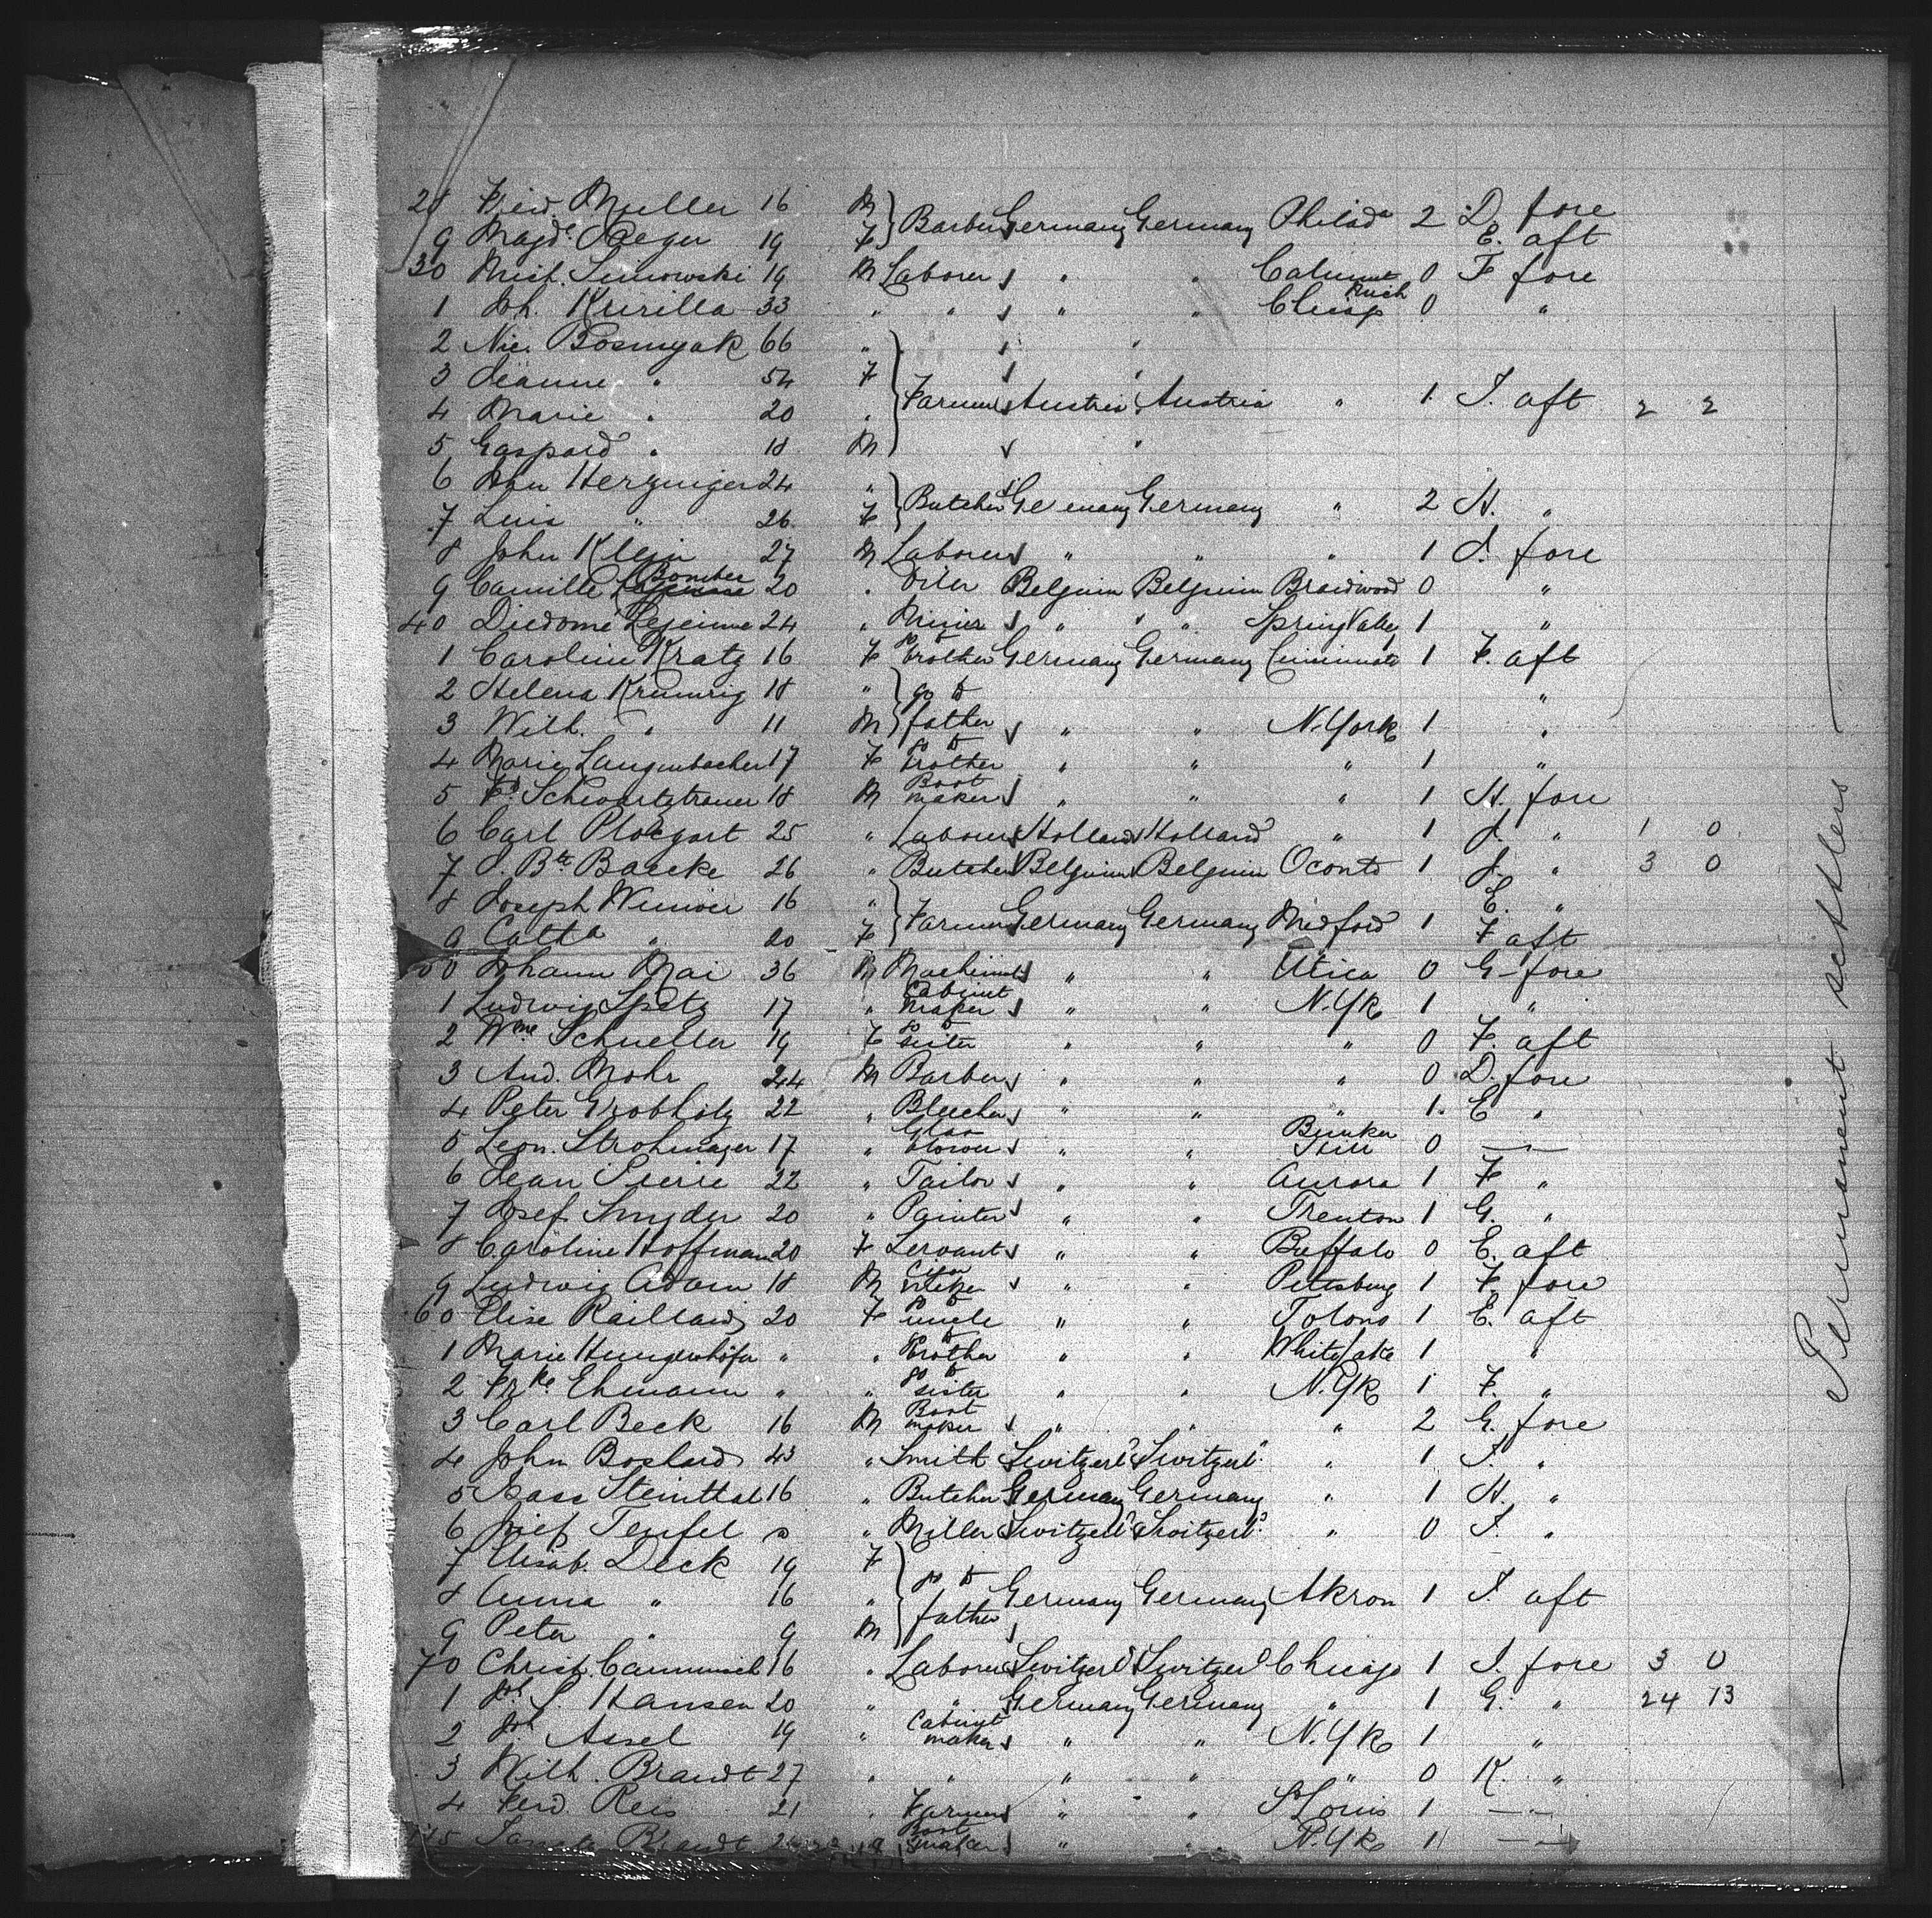 28 Fried. Muller 16 M Barber Germany Germany Philada 2 D. fore
9 Magde. Reger 19 F E. aft
30 Mich. 19 M Laborer " " Calumet Mich 0 F fore
1 Joh. Kurilla 33 " " " " 0 "
2 Nic. Bosnyak 66 " "
3 Jeanne " 54 F "
4 Marie " 20 " Farmer Austria Austria " 1 I. aft 2 2
5 Gaspard " 18 M "
6 Herzniger 24 "
7 " 26 F Butcher Germany Germany " 2 H. "
8 John Klein 27 M Laborer " " " 1 J. fore
9 Camille Bomber 20 " Belgium Belgium Braidwood 0 "
40 Diedomé Lejeune 24 " Miner " " Spring Valley 1 "
1 Caroline Kratz 16 F go to brother Germany Germany Cincinnati 1 F. aft
2 Helena Krumrig 18 " go to "
3 Wilh. " 11 M father " " N. York 1 "
4 Marie Langenbacher 17 F go to brother " " " 1 "
5 Fd. Schwartztrauer 18 M Boot maker " " " 1 H. fore
6 Carl Ploegart 25 " Laborer Holland Holland " 1 J. " 1 0
7 J. Bte. Baecke 26 " Butcher Belgium Belgium Oconto 1 J. " 3 0
8 Joseph 16 " E. "
9 Catha " 20 F Farmer Germany Germany Medford 1 F aft
50 Johann Mai 36 M Machinist " " Utica 0 G - fore
1 Ludwig Spetz 17 " Cabinet maker " " N.Yk 1 "
2 Wme. Schueller 19 F go to sister " " " 0 F. aft
3 And. Mohr 24 M Barber " " " 0 D. fore
4 Peter Grobholz 22 " " " " 1. E "
5 Leon. Strohmayer 17 " Glass blower " " Bunker Hill 0 —"—
6 Jean Pierre 22 " Tailor " " Aurora 1 F "
7 Josef Snyder 20 " Painter " " Trenton 1 G. "
8 Caroline Hoffmann 20 F Servant " " Buffalo 0 E. aft
9 Ludwig Adam 18 M Cigar maker " " Petersburg 1 F. fore
60 Elise Raillard 20 F go to uncle " " Tolono 1 E. aft
1 Marie Hungerhöfer " " go to brother " " White Lake 1 "
2 Frke. Ehmann " " go to sister " " N.Yk 1 F. "
3 Carl Beck 16 M Boot maker " " " 2 G. fore
4 John Boshard 43 " Smith Switzerld Switzerld " 1 I. "
5 Isaac Steinthal 16 " Butcher Germany Germany " 1 H. "
6 Josef Teufel " " Miller Switzerld Switzerld " 0 I. "
7 Elisab. Deck 19 F
8 Anna " 16 " go to father Germany Germany Akron 1 I. aft
9 Peter " 9 M
70 Christ. 16 " Laborer Switzerld Switzerld Chicago 1 I. fore 3 0
1 Joh. S. Hansen 20 " " Germany Germany " 1 G. " 24 13
2 Joh. Assel 19 " Cabinet maker " " N.Yk 1 "
3 Wilh. Brandt 27 " " " " " 0 K. "
4 Ferd Reis 21 " Farmer " " St Louis 1 —"—
75 Brandt Boot maker " " N.Yk 1 —"—
Permanent settlers